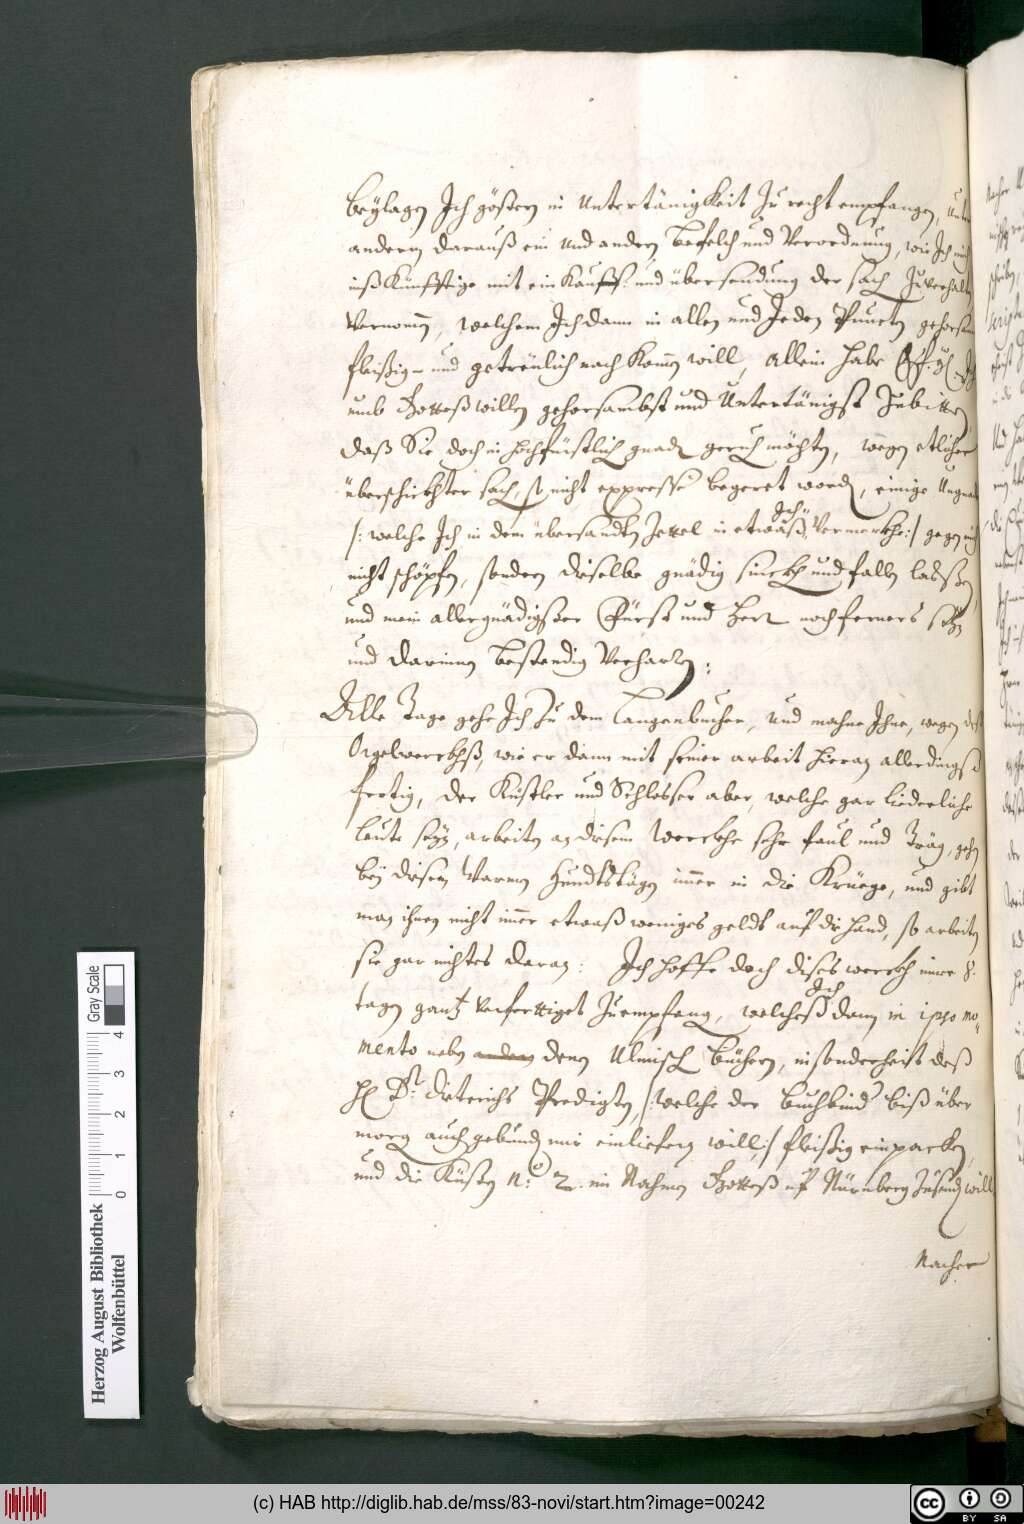 beÿlagen Ich gestern in Untertänigkeit Zu recht empfangen, Unter
andern darauß ein und andern Befelch und Verordnung, wie Ich mich
inß Künfftige mit ein Kauff: und übersendung der sach Zuverhalten
Vernomen, welchem Ich dann in allen und Jeden Puncten gehorsam
fleißig- und getreülich nach Komen will, allein habe
umb Gotteß willen gehorsambst und Untertänigst Zubitten
daß Sie doch in hochfürstlich gnad geruh möchten, wegen etlicher
überschickhter sach, so nicht expresse begeret word, einige Ungnad
/: welche Ich in dem übersandten Zettel in etwaß Vermerckhe :/ gegen mich
nicht schöpfen, sondern dieselbe gnädig sinckh und fallen laßen,
und mein allergnädigster Fürst und Herr noch ferners sein
und darinnen bestendig Verharren:
Alle Tage gehe Ich Zu dem Langenbucher, und mahne Ihne, wegen deß
Orgelwerckhß, wie er dann mit seiner arbeit hieran allerdingß
fertig, der Küstler und Schlosser aber, welche gar liederliche
leute seyn, arbeiten an disem Werckhe sehr faul und Träg, gehen
bey disen Warmen Hundtstägen imer in die Krüege, und gibt
man ihnen nicht imer etwaß weniges geldt auf die hand, so arbeiten
sie gar nichtes daran: Ich hoffe doch dises werckh inner 8.
tagen gantz Verfertiget Zuempfang, welcheß Ich dann in ipso mo-
mento neben denen Ulmisch Büchern, insonderheit deß
H D: Dieterichs Predigten, /: welche der Buchbind biß über
morg auch gebund mir einliefern will :/ fleißig einpacken,
und die Küsten N:o 2. im Nahmen Gotteß uf Nürnberg Zusend will
Nacher
Herzog August Bibliothek
Wolfenbüttel
0 1 2 3 4
Gray Scale
(c) HAB http://diglib.hab.de/mss/83-novi/start.htm?image=00242
cc BY SA